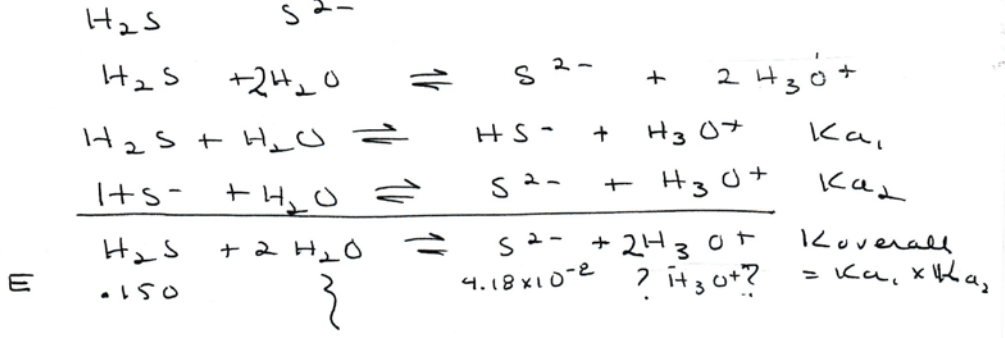 H₂S S²⁻
H₂S +2H₂O ⇌ S²⁻ + 2 H₃O⁺
H₂S + H₂O ⇌ HS⁻ + H₃O⁺ Ka₁
HS⁻ + H₂O ⇌ S²⁻ + H₃O⁺ Ka₂
H₂S + 2 H₂O ⇌ S²⁻ + 2H₃O⁺ Koverall
E .150 } 4.18×10⁻² ? H₃O⁺? = Ka₁ × Ka₂